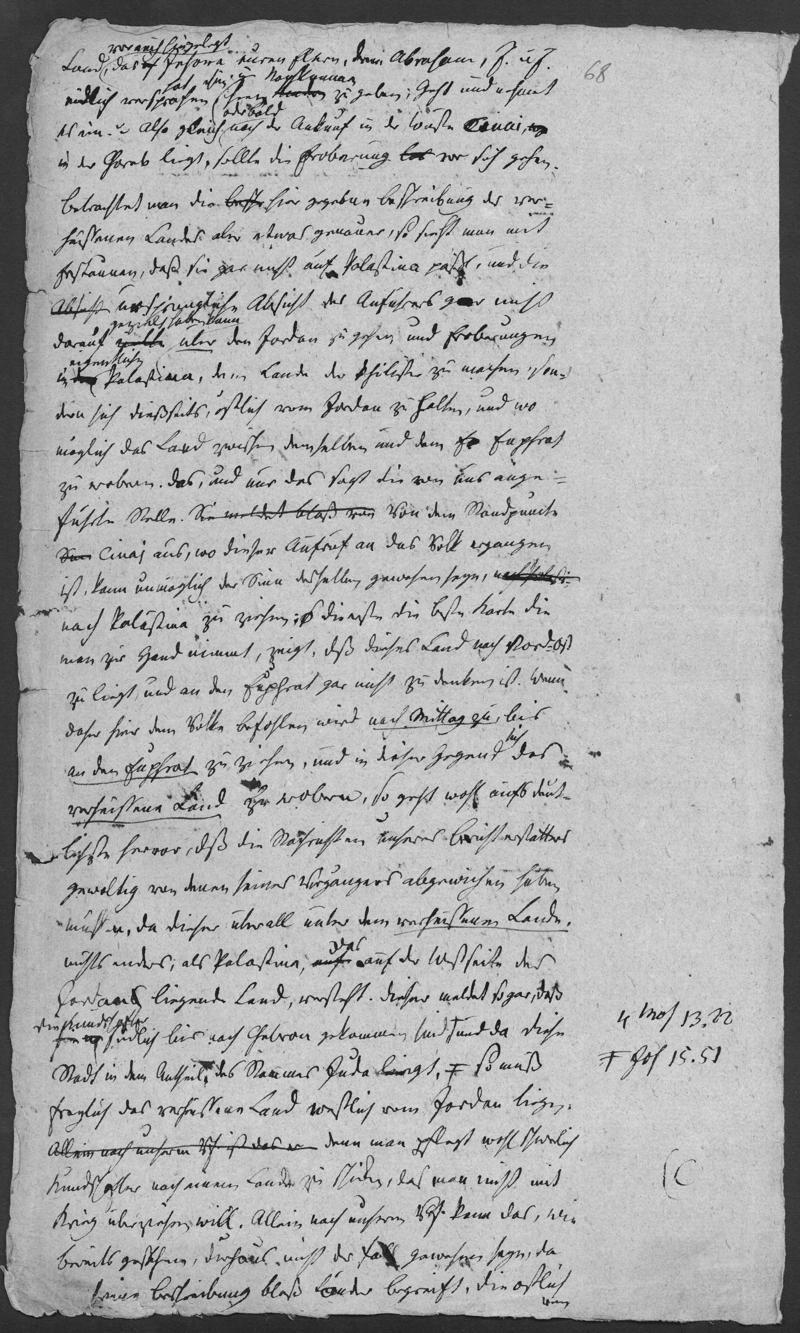 vor euch hingelegt
68
Land, das Jehova euren Eltern, dem Abraham, J. u. J.
hat, ihnen u Nachkommen
eidlich versprochen zu geben; Geht und nehmt
es ein. Also gleich nach der Ankunft in der Wüste Cinai,
in der Horeb liegt, sollte die Eroberung vor sich gehen.
Betrachtet man die hier gegebene Beschreibung des ver-
heissenen Landes aber etwas genauer, so sieht man mit
Erstaunen, daß sie gar nicht auf Palästina paßt, und die
Absicht ursprüngliche Absicht des Anführers gar nicht
gezielt haben kann
darauf über den Jordan zu gehen und Eroberungen
eigentlichen
in Palästina, dem Lande der Philister zu machen, son-
dern sich diesseits, östlich vom Jordan zu halten, und wo
möglich das Land zwischen demselben und dem Euphrat
zu erobern. Das, und nur das sagt die von uns ange-
führte Stelle. Sie meldet bloß von Von dem Standpuncte
Cinai aus, wo dieser Aufruf an das Volk ergangen
ist, kann unmöglich der Sinn desselben gewesen seyn,
nach Palästina zu ziehen; die beste Karte die
man zur Hand nimmt, zeigt, daß dieses Land nach Nord-Ost
zu liegt, und an den Euphrat gar nicht zu denken ist. Wenn
daher hier dem Volke befohlen wird nach Mittag zu, bis
an den Euphrat zu ziehen, und in dieser Gegend sich das
verheissene Land zu erobern, so geht wohl aufs deut-
lichste hervor, daß die Nachrichten unseres Berichterstatters
gewaltig von denen seines Vorgängers abgewichen haben
müssen, da dieser überall unter dem verheissenen Lande,
nichts anders, als Palästina, das auf der Westseite des
Jordans liegende Land, versteht. Dieser meldet sogar, daß
die Kundschafter
südlich bis nach Hebron gekommen sind und da diese
4 Mos 13.22
Stadt in dem Antheile des Stammes Juda liegt, so muß
Jos 15.51
freylich das verheissene Land westlich vom Jordan liegen,
Allein nach unserm Vf. ist das denn man pflegt wohl schwerlich
Kundschafter nach einem Lande zu schicken, das man nicht mit
Krieg überziehen will. Allein nach unserm Vf. kann das, wie
bereits gesehen, durchaus nicht der Fall gewesen seyn, da
seine Beschreibung bloß Länder begreift, die östlich
vom